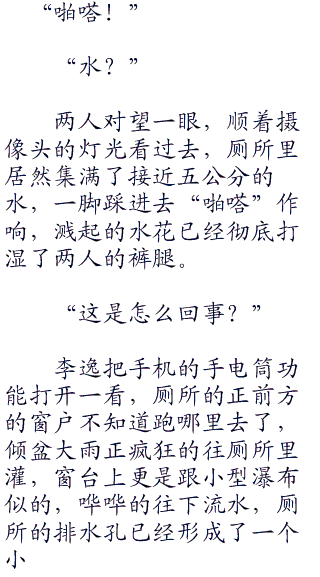 “啪嗒！”
“水？”
两人对望一眼，顺着摄
像头的灯光看过去，厕所里
居然集满了接近五公分的
水，一脚踩进去“啪嗒”作
响，溅起的水花已经彻底打
湿了两人的裤腿。
“这是怎么回事？”
李逸把手机的手电筒功
能打开一看，厕所的正前方
的窗户不知道跑哪里去了，
倾盆大雨正疯狂的往厕所里
灌，窗台上更是跟小型瀑布
似的，哗哗的往下流水，厕
所的排水孔已经形成了一个
小